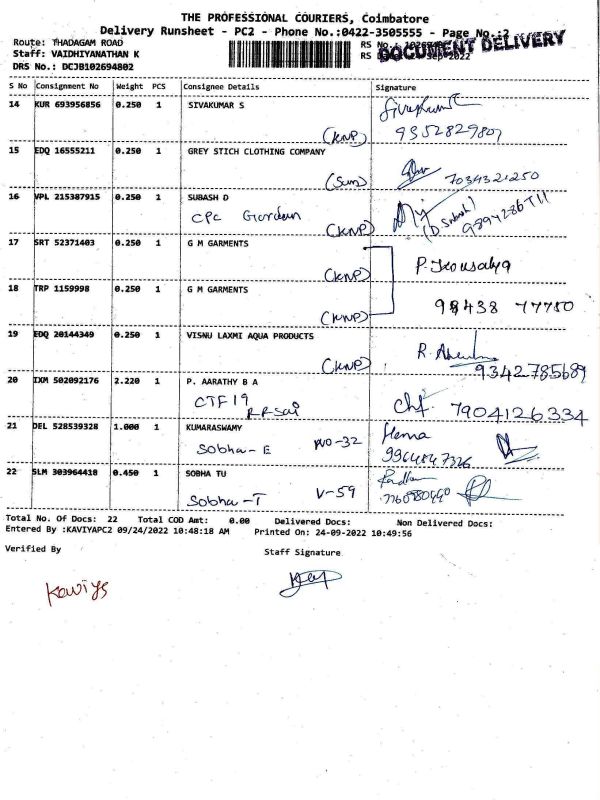 THE PROFESSIONAL COURIERS, Coimbatore
Delivery Runsheet - PC2 - Phone No.:0422-3505555 - Page No.:2
Route: THADAGAM ROAD
Staff: VAIDHIYANATHAN K
DRS No.: DCJB102694802
RS
RS Sep-2022
DOCUMENT DELIVERY
S No Consignment No Weight PCS Consignee Details Signature
14 KUR 693956856 0.250 1 SIVAKUMAR S Sivakumar
(KNP) 9352829807
15 EDQ 16555211 0.250 1 GREY STICH CLOTHING COMPANY
(Sun) 7034321250
16 VPL 215387915 0.250 1 SUBASH D
CPC Garden (KNP) (D. Subash)
17 SRT 52371403 0.250 1 G M GARMENTS
(KNP) P. Kousalya
18 TRP 1159998 0.250 1 G M GARMENTS
(KNP) 98438 77750
19 EDQ 20144349 0.250 1 VISNU LAXMI AQUA PRODUCTS
(KNP) R. 9342785689
20 IXM 502092176 2.220 1 P. AARATHY B A
CTF 19
RR Sai 7904126334
21 DEL 528539328 1.000 1 KUMARASWAMY Hema
Sobha-E WO-32 9964847326
22 SLM 303964410 0.450 1 SOBHA TU
Sobha-T V-59
Total No. Of Docs: 22 Total COD Amt: 0.00 Delivered Docs: Non Delivered Docs:
Entered By :KAVIYAPC2 09/24/2022 10:48:18 AM Printed On: 24-09-2022 10:49:56
Verified By Staff Signature
Kaviya